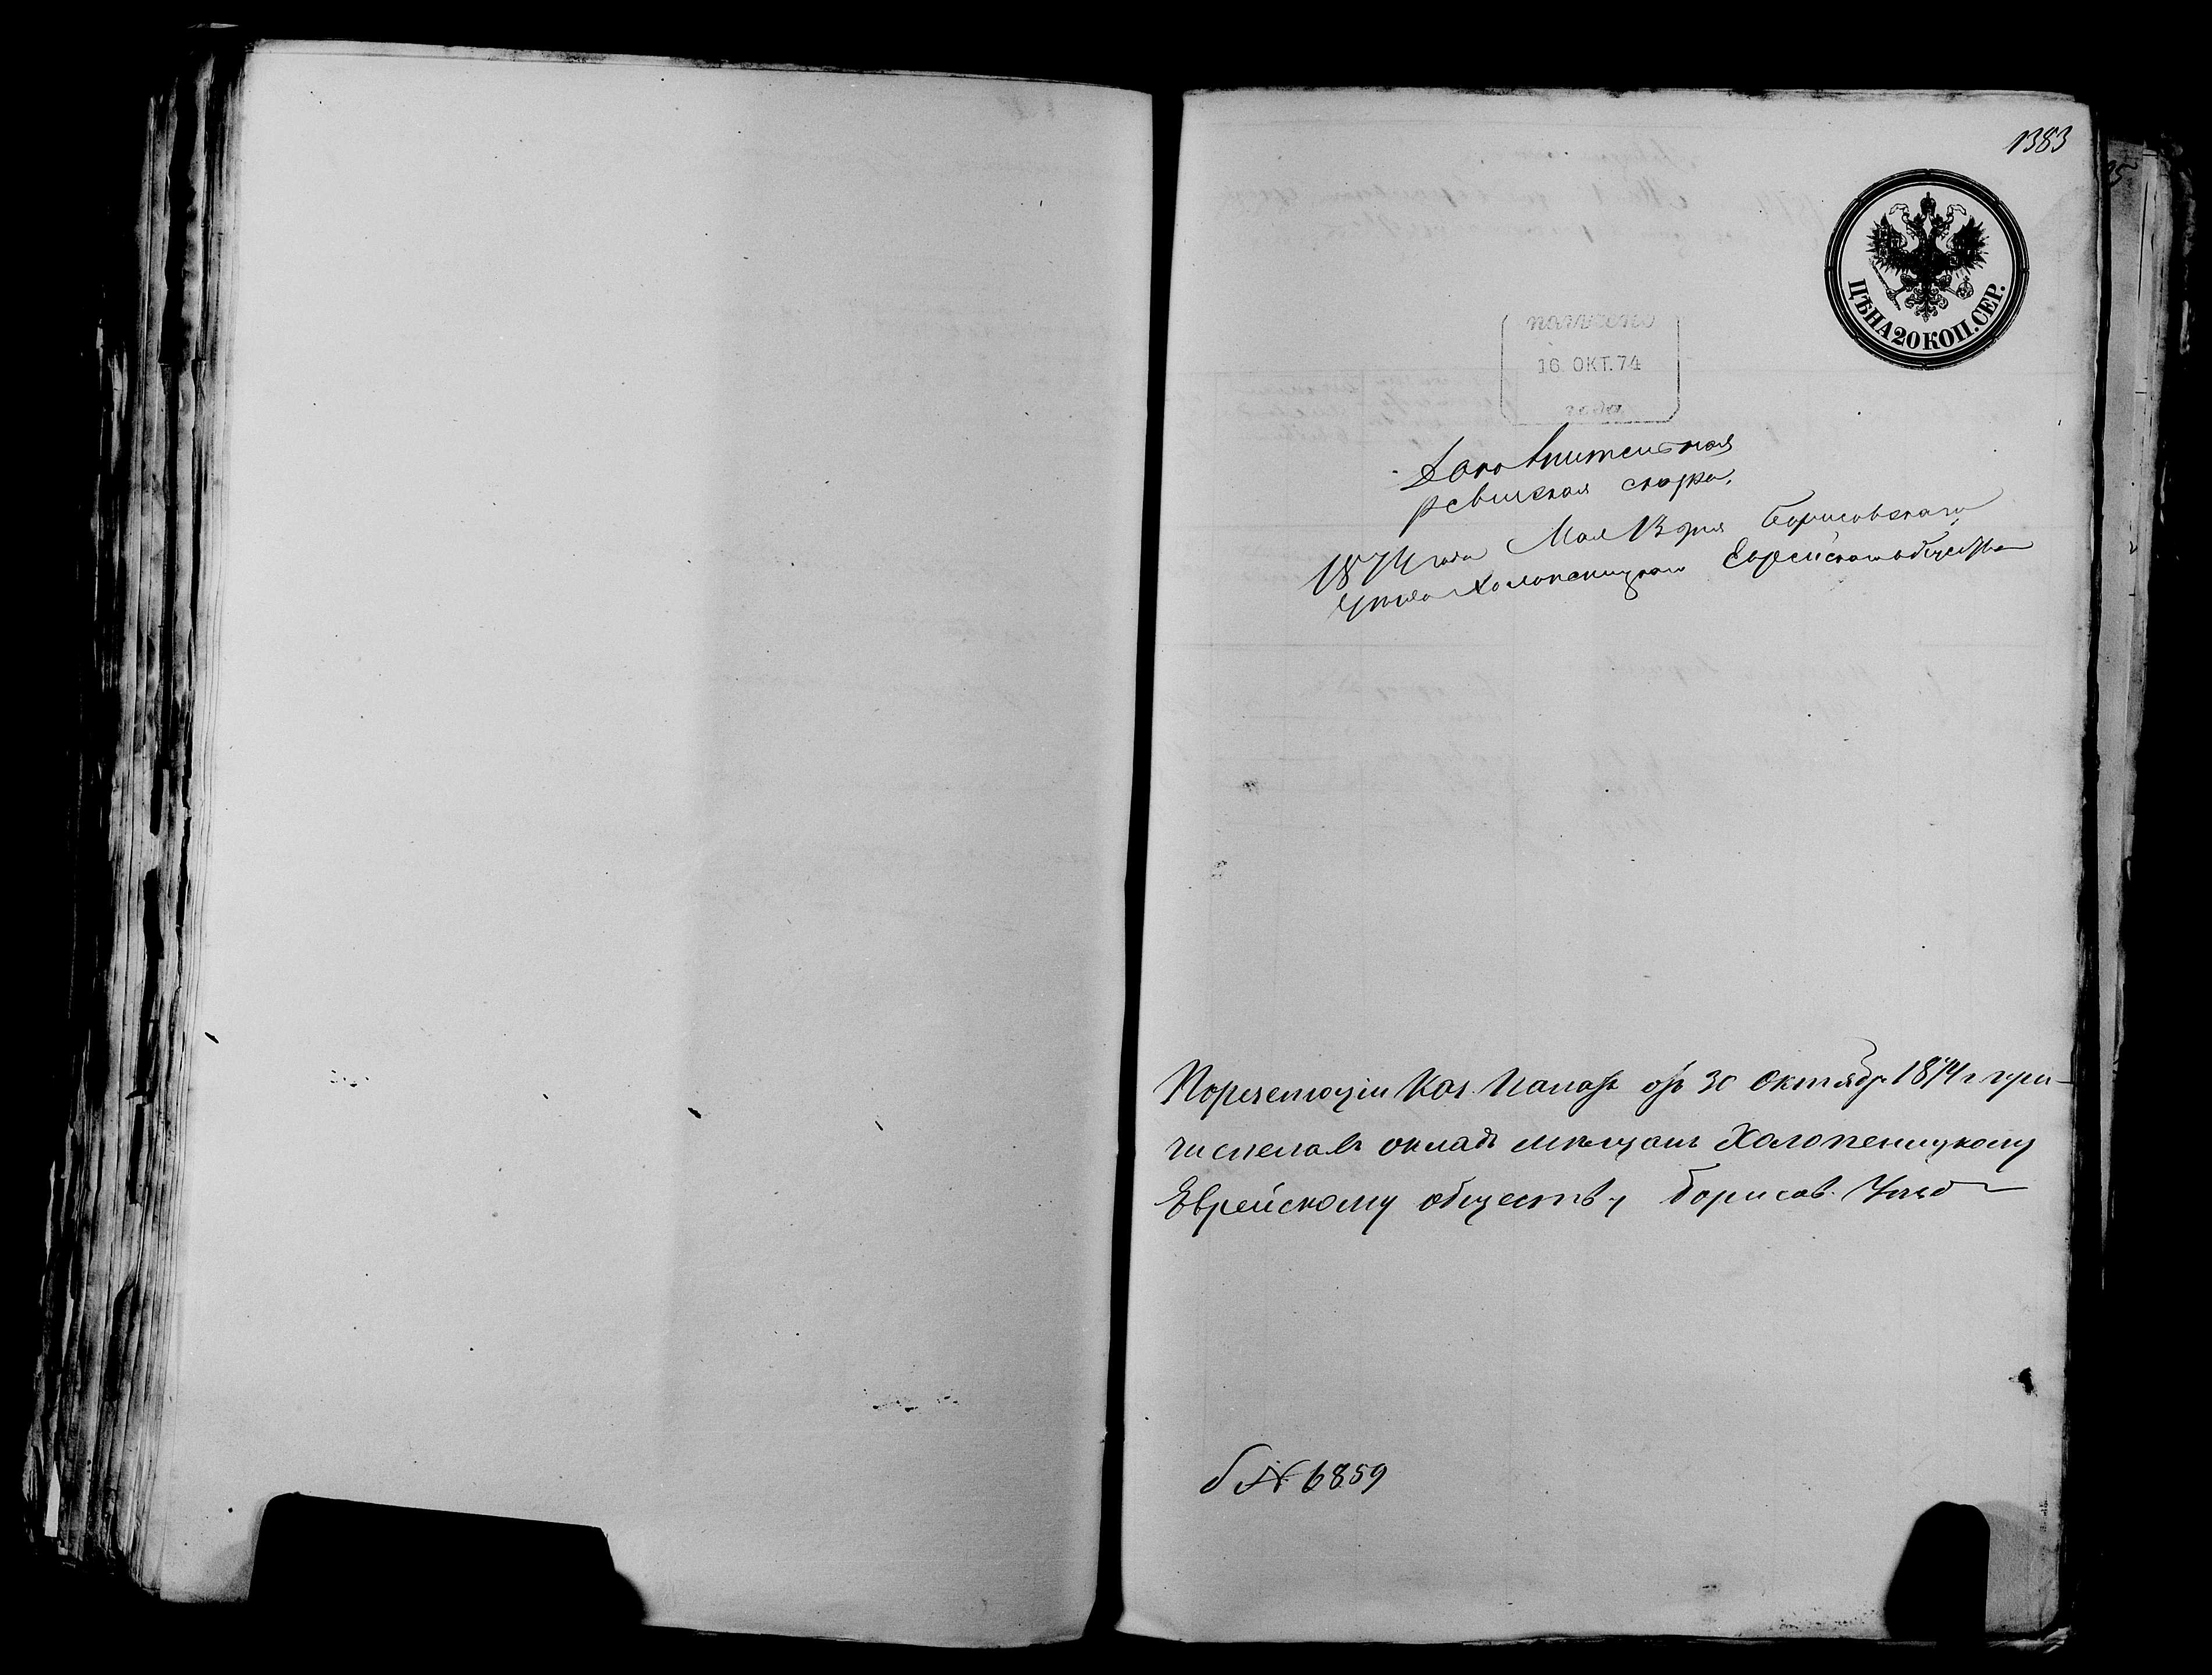 1383
ЦѢНА 20 КОП. СЕР.
получено
16 ОКТ. 74
года
Дополнительная
ревизская сказка
1874 года Мая 13 дня Борисовскаго
уѣзда Холопеническаго Еврейскаго общества
По резолюціи Каз. Палаты отъ 30 Октября 1874 г при-
численъ въ окладъ мѣщанъ Холопеницкому
Еврейскому обществу Борисов. Уѣзд
б № 6859